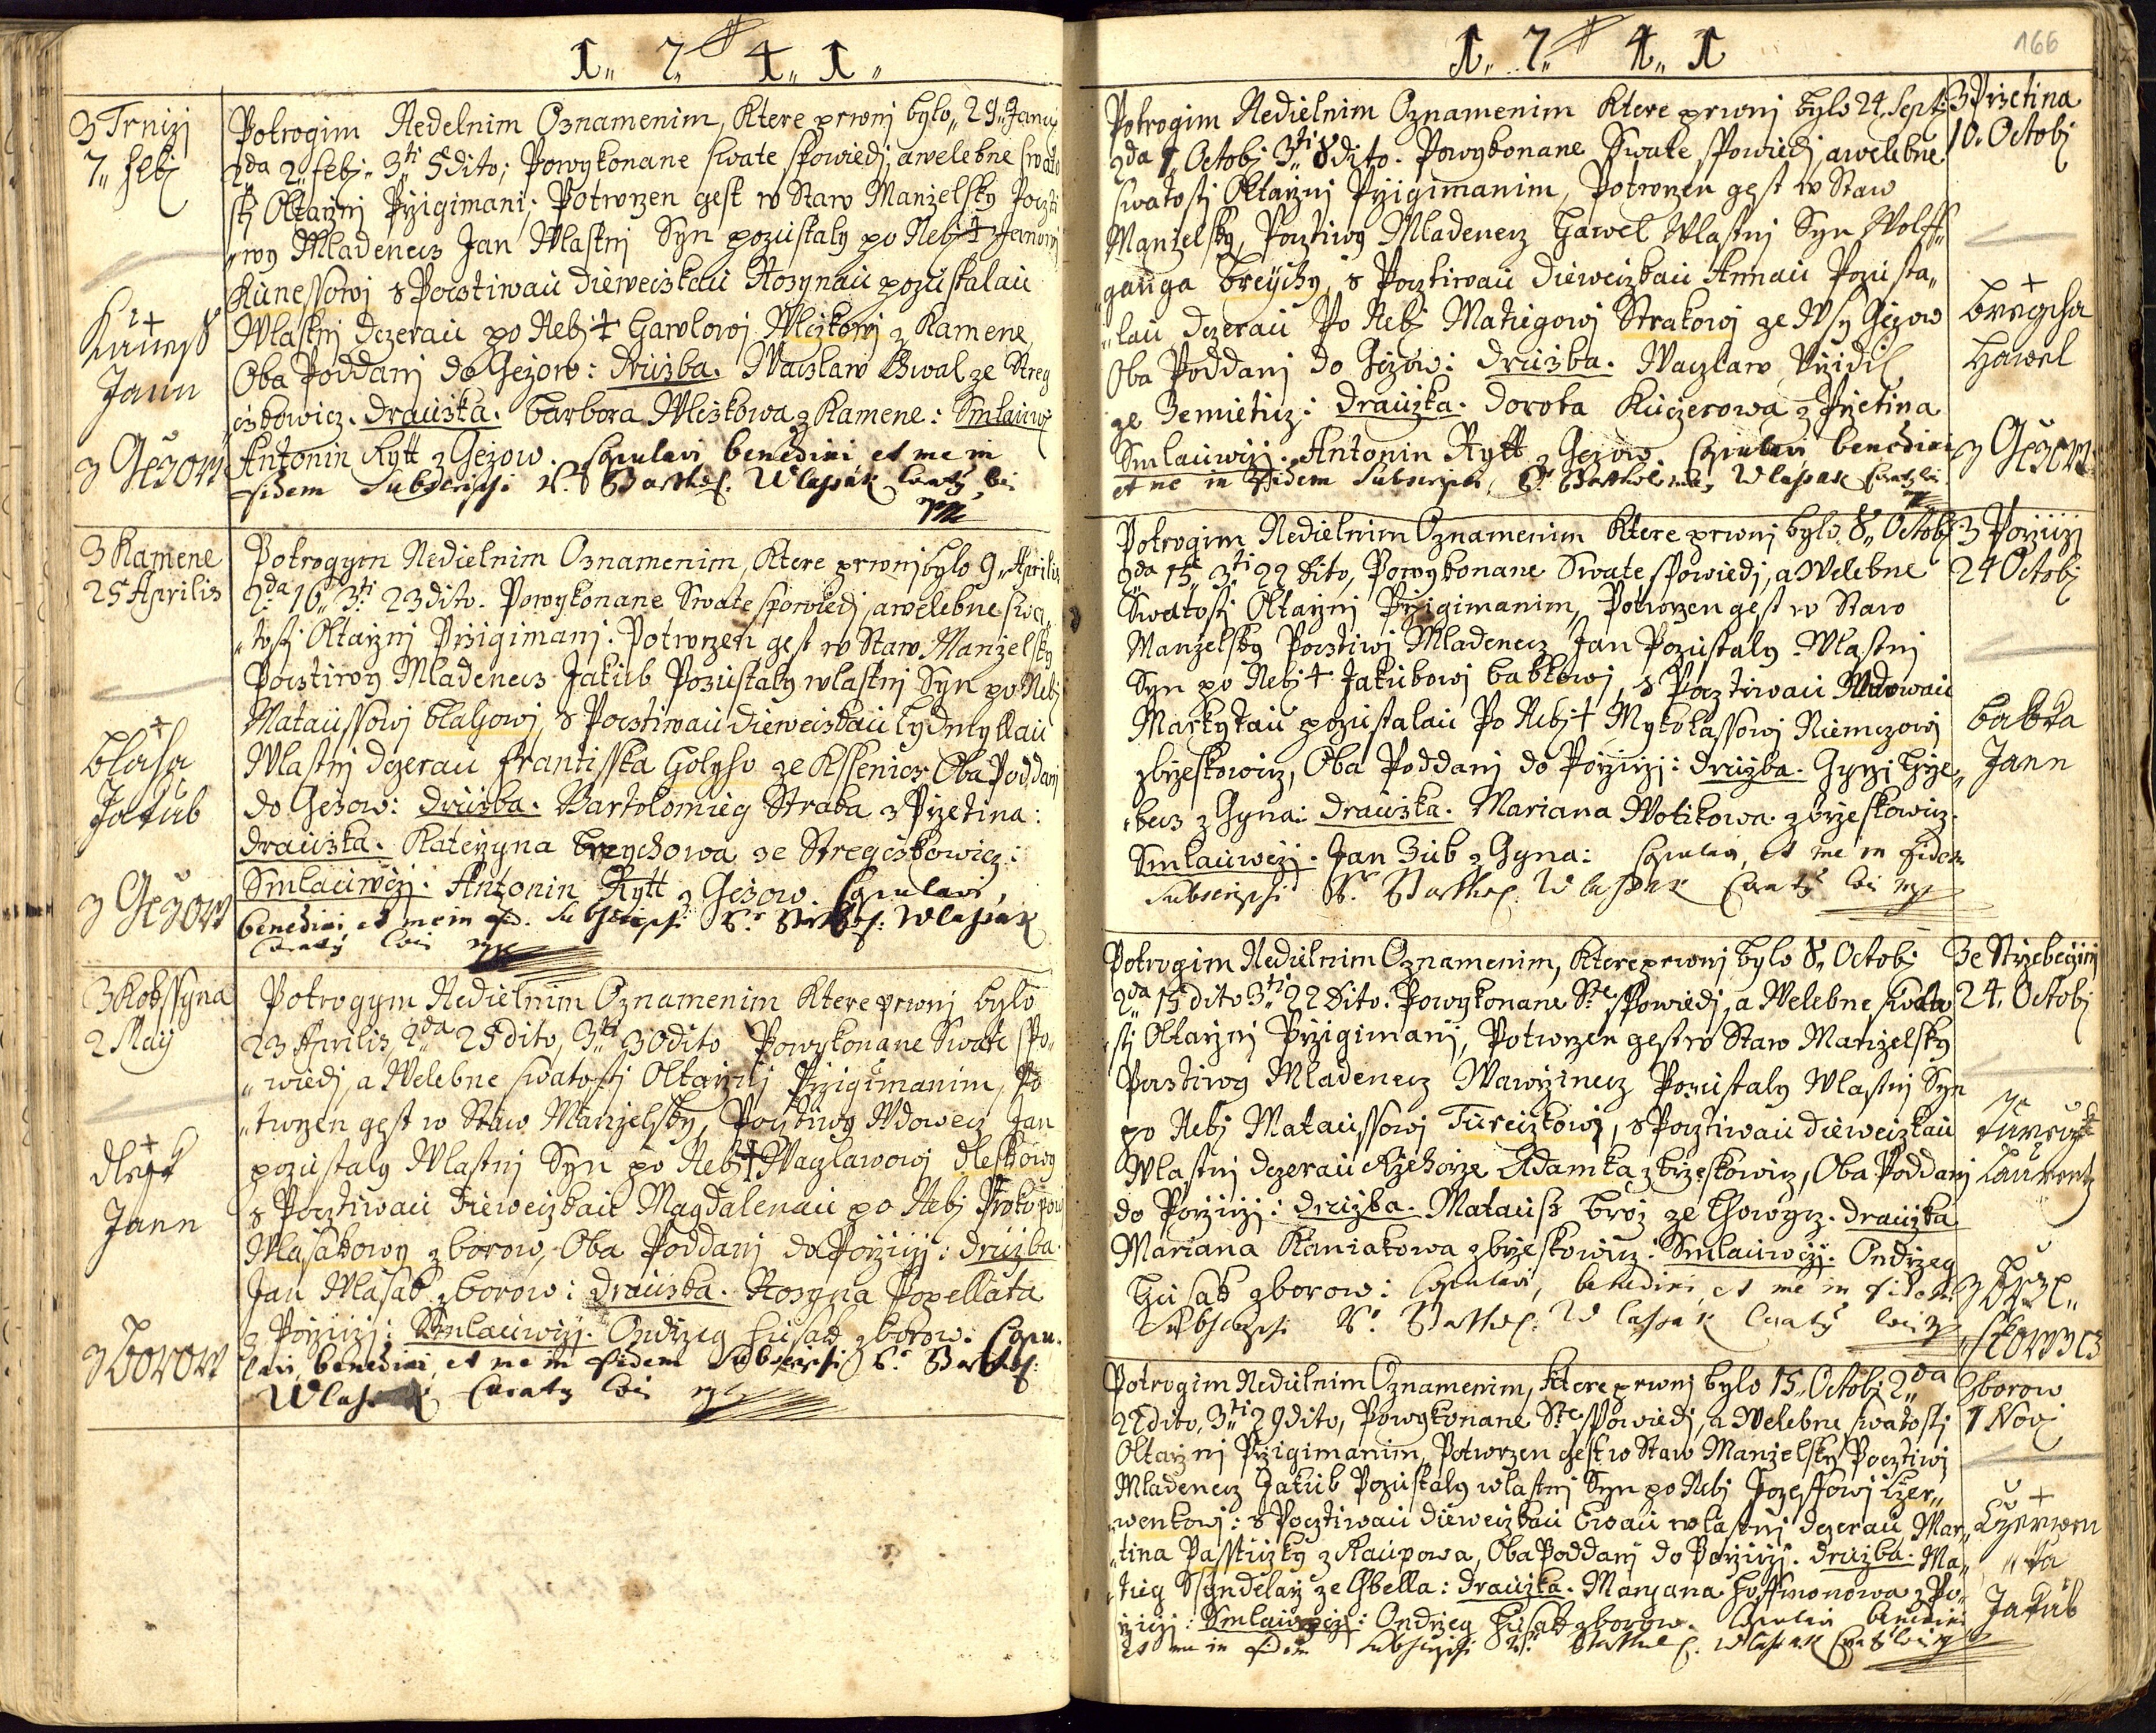 1,, 7,, 4,, 1,,
3 Trnizj
7,, Febj
Kuness
Jann
z Gezow
Potrogim Nedelnim Oznamenim, Ktere prwnj bylo,, 29,, Januj
2da 2,, Febj,, 3ti 5 dito; Powykonane swate spowiedj, awelebne swato
stj Oltarznj Przigimani; Potwrzen gest w Staw Manzelsky Poczti
,,wy Mladenecz Jan Wlastnj Syn pozustaly po Nebj †
Kunessowj s Pocztiwau dieweczkau Rozynau pozustalau
Wlastnj dczerau po Nebj † Gawlowj Wlczkowj z Kamene,
Oba Poddanj do Gezow: druzba. Waczlaw Chwal ze Streg
czkowicz. drauzka. Barbora Wlczkowa z Kamene: Smlauwcz
Antonin Rytt z Gezow. Copulavi benedixi et me in
fidem Subscripsi P. Barthol. Wlassak Curatus loci
mp
3 Kamene
25 Aprilis
Blaha
Jakub
z Gezow
Potrogym Nedielnim Oznamenim, Ktere prwnj bylo 9,, Aprilis
2da 16,, 3ti 23 dito. Powykonane Swate spowiedj, awelebne swa,,
,,tostj Oltarznj Przigimanj. Potwrzen gest w Staw Manzelsky
Pocztiwy Mladenecz Jakub Pozustaly wlastnj Syn po Nebj
Mataussowj Blahowj, s Pocztiwau dieweczkau Lydmyllau
Wlastnj dczerau Frantisska Holyho ze Kssenicz Oba Poddanj
do Gezow: druzba. Bartolomieg Straka z Przetina:
drauzka. Katerzyna Breychowa ze Stregczkowicz:
Smlauwczj. Antonin Rytt z Gezow. Copulavi,
benedixi, et me in fid. Subscripsi P. Barthol: Wlassak
Curatus loci mp
3 Kobssyna
2 Maij
dlesk
Jann
z Borow
Potrogym Nedielnim Oznamenim Ktere prwnj bylo
23 Aprilis, 2da 25 dito, 3ti 30 dito Powykonane Swate spo,,
,,wiedj, a Welebne swatostj Oltarznj Przigimanim, Po
,,twrzen gest w Staw Manzelsky, Pocztiwy Wdowecz Jan
pozustaly Wlastnj Syn po Nebj † Waczlawowj dleskowy
s Pocztiwau dieweczkau Magdalenau po Nebj Prokopowj
Masakowy z Borow, Oba Poddanj do Porziczj: druzba.
Jan Masak z Borow: drauzka. Rozyna Popellata
z Porziczj: Smlauwczj. Ondrzeg Husak z Borow. Copu,,
lavi, benedixi, et me in fidem Subscripsi P. Barthol:
Wlassak Curatus loci mp
1,, 7,, 4,, 1
166
Potrogim Nedielnim Oznamenim Ktere prwnj bylo 24,, Sept:
2da 1,, Octobj 3ti 8 dito. Powykonane Swate spowiedj awelebne
swatostj Oltarznj Przigimanim, Potwrzen gest w Staw
Manzelsky, Pocztiwy Mladenecz Hawel Wlastnj Syn Wolff,,
,,ganga Breychy, s Pocztiwau dieweczkau Annau Pozusta,,
,,lau dczerau Po Nebj Matiegowj Strakowj ze Wsy Gezow
Oba Poddanj do Gezow: druzba. Waczlaw
ze Zemieticz: drauzka. Dorota Kuczerowa z Przetina
Smlauwczj. Antonin Rytt z Gezow. Copulavi benedixi
et me in Fidem Subscripsi, P. Bartholomeus Wlassak Curatus loci
3 Przetina
10. Octobj
Breycha
Hawel
z Gezow
Potrogim Nedielnim Oznamenim Ktere prwnj bylo 8,, Octobj
2da 15,, 3ti 22 dito, Powykonane Swate spowiedj, a Welebne
Swatostj Oltarznj Przigimanim,, Potwrzen gest w Staw
Manzelsky Pocztiwj Mladenecz Jan Pozustaly Wlastnj
Syn po Nebj † Jakubowj Babkowj, s Pocztiwau Wdowau
Markytau pozustalau Po Nebj † Mykolassowj Niemczowj
z Brzeskowicz, Oba Poddanj do Porziczj: druzba. Gyrzj Hrze,,
,,becz z Gyna: drauzka. Mariana Wotikowa z Brzeskowicz.
Smlauwczj. Jan Zub z Gyna: Copulavi, et me in fidem
Subscripsi P. Barthol. Wlassak Curatus loci mp
3 Porziczj
24 Octobj
Babka
Jann
Potrogim Nedielnim Oznamenim, Ktere prwnj bylo 8,, Octobj
2da 15 dito 3ti 22 Dito. Powykonane Ste spowiedj, a Welebne swato
stj Oltarznj Przigimanj, Potwrzen gest w Staw Manzelsky
Pocztiwy Mladenecz Wawrzinecz Pozustaly Wlastnj Syn
po Nebj Mataussowj Tureczkowj, s Pocztiwau dieweczkau
Wlastnj dczerau Rzehorze Adamka z Brzeskowicz, Oba Poddanj
do Porziczj: druzba. Matauss Broz ze Lhowycz. drauzka
Mariana Kaniakowa z Brzeskowicz: Smlauwczj. Ondrzeg
Husak z Borow: Copulavi, benedixi, et me in fidem
Subscripsi P. Barthol. Wlassak Curatus loci mp
3e Strzebegczinj
24. Octobj
Tureczk
Laurentz
z Brze,,
,,skowicz
Potrogim Nedielnim Oznamenim, Ktere prwnj bylo 15,, Octobj 2da
22 dito, 3ti 29 dito, Powykonane Ste spowiedj, a Welebne swatostj
Oltarznj Przigimanim, Potwrzen gest w Staw Manzelsky Pocztiwj
Mladenecz Jakub Pozustaly wlastnj Syn po Nebj Jozeffowj Czer,,
,,wenkowj: s Pocztiwau dieweczkau Ewau wlastnj dczerau Mar,,
,,tina Passtiuzky z Raupowa, Oba Poddanj do Porziczj. druzba. Ma,,
,,tieg Ssyndelarz ze Chbella: drauzka. Maryana Hoffmonowa z Po,,
rziczj: Smlauwczj: Ondrzeg Husak z Borow. Copulavi benedixi
et me in fidem Subscripsi P. Barthol. Wlassak Curatus loci mp
z Borow
1 Novj
Czerwen
,,ka
Jakub